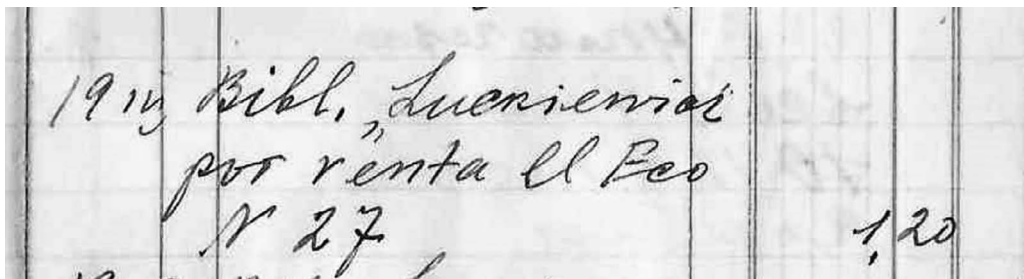 19 IV Bibl. „Luckiewicz
por venta El Eco
N 27 1,20